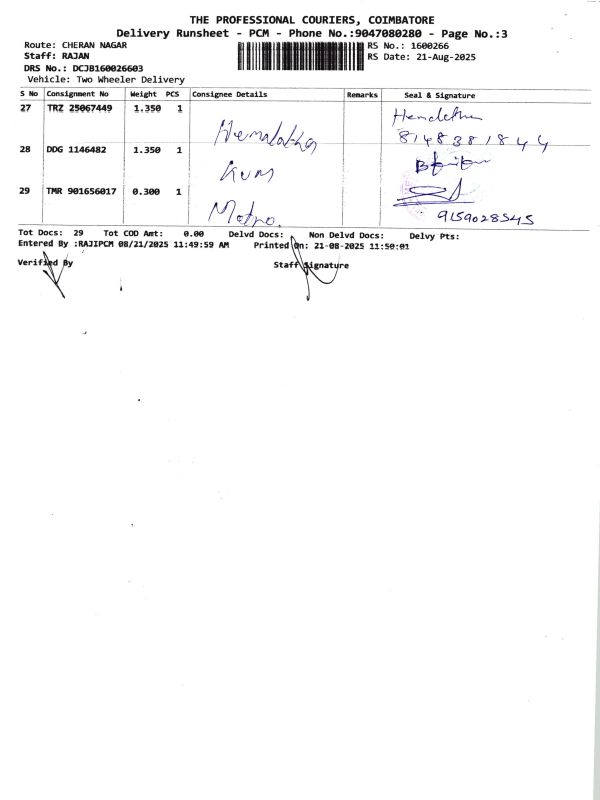 THE PROFESSIONAL COURIERS, COIMBATORE
Delivery Runsheet - PCM - Phone No.:9047080280 - Page No.:3
Route: CHERAN NAGAR RS No.: 1600266
Staff: RAJAN RS Date: 21-Aug-2025
DRS No.: DCJB160026603
Vehicle: Two Wheeler Delivery
S No Consignment No Weight PCS Consignee Details Remarks Seal & Signature
27 TRZ 25067449 1.350 1 Hemalatha
8148381844
28 DDG 1146482 1.350 1 Kum
29 TMR 901656017 0.300 1 Metro
9159028545
Tot Docs: 29 Tot COD Amt: 0.00 Delvd Docs: Non Delvd Docs: Delvy Pts:
Entered By :RAJIPCM 08/21/2025 11:49:59 AM Printed On: 21-08-2025 11:50:01
Verified By Staff Signature